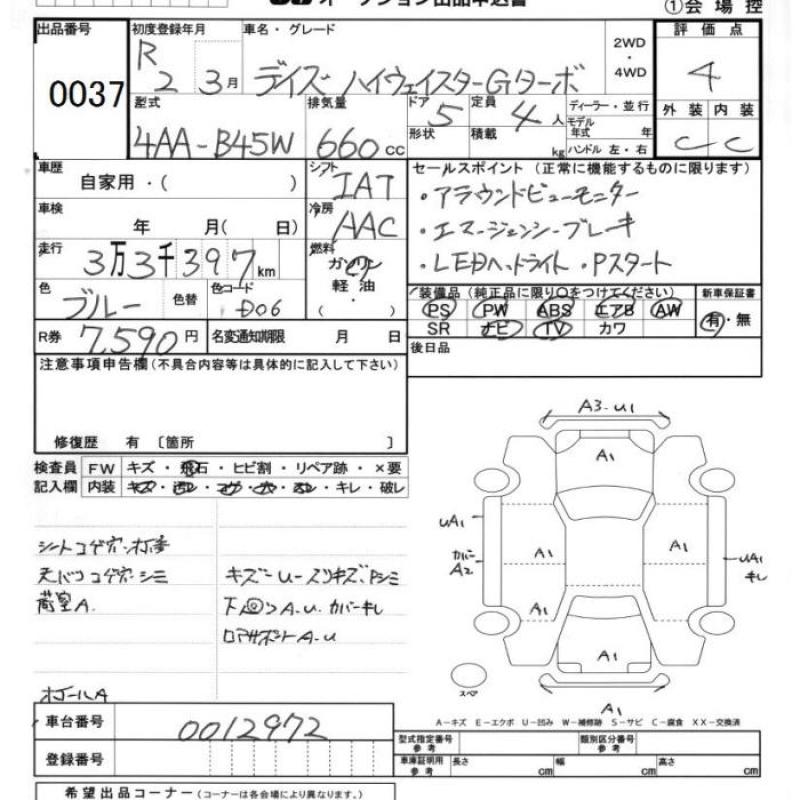 オークション出品申込書
①会場控
出品番号
0037
初度登録年月
R2 3月
車名・グレード
デイズ ハイウェイスターGターボ
2WD
・
4WD
評価点
4
型式
4AA-B45W
排気量
660 cc
ドア 5
形状
定員 4人
積載 kg
ディーラー・並行
モデル年式 年
ハンドル 左・右
外装 内装
C C
車歴
自家用・( )
シフト
IAT
車検
年 月( 日)
冷房
AAC
走行
3万3千397km
燃料
ガソリン
軽油
・
( )
色
ブルー
色替
色コード
D06
R券
7,590円
名変通知期限 月 日
セールスポイント (正常に機能するものに限ります)
・アラウンドビューモニター
・エマージェンシーブレーキ
・LEDヘッドライト ・Pスタート
装備品 (純正品に限り○をつけてください)
新車保証書
PS PW ABS エアB AW
SR ナビ TV カワ
有・無
後日品
注意事項申告欄(不具合内容等は具体的に記入して下さい)
修復歴 有 〔箇所 〕
検査員
記入欄
FW キズ・飛石・ヒビ割・リペア跡・×要
内装 キズ・ ・ ・ ・ ・キレ・破レ
シートコゲ穴・
天バリコゲ穴・シミ
荷室A.
キズ〜U・スリキズ、Pシミ
下回りA.U.カバーキレ
A-U
A
A3-U1
A1
UA1
カバー
A2
A1
A1
UA1
キレ
A1
A1
スペア
A1
A-キズ E-エクボ U-凹み W-補修跡 S-サビ C-腐食 XX-交換済
車台番号
0012972
登録番号
型式指定番号
参考
類別区分番号
参考
車庫証明用
参考
長さ cm
幅 cm
高さ cm
希望出品コーナー (コーナーは各会場により異なります。)